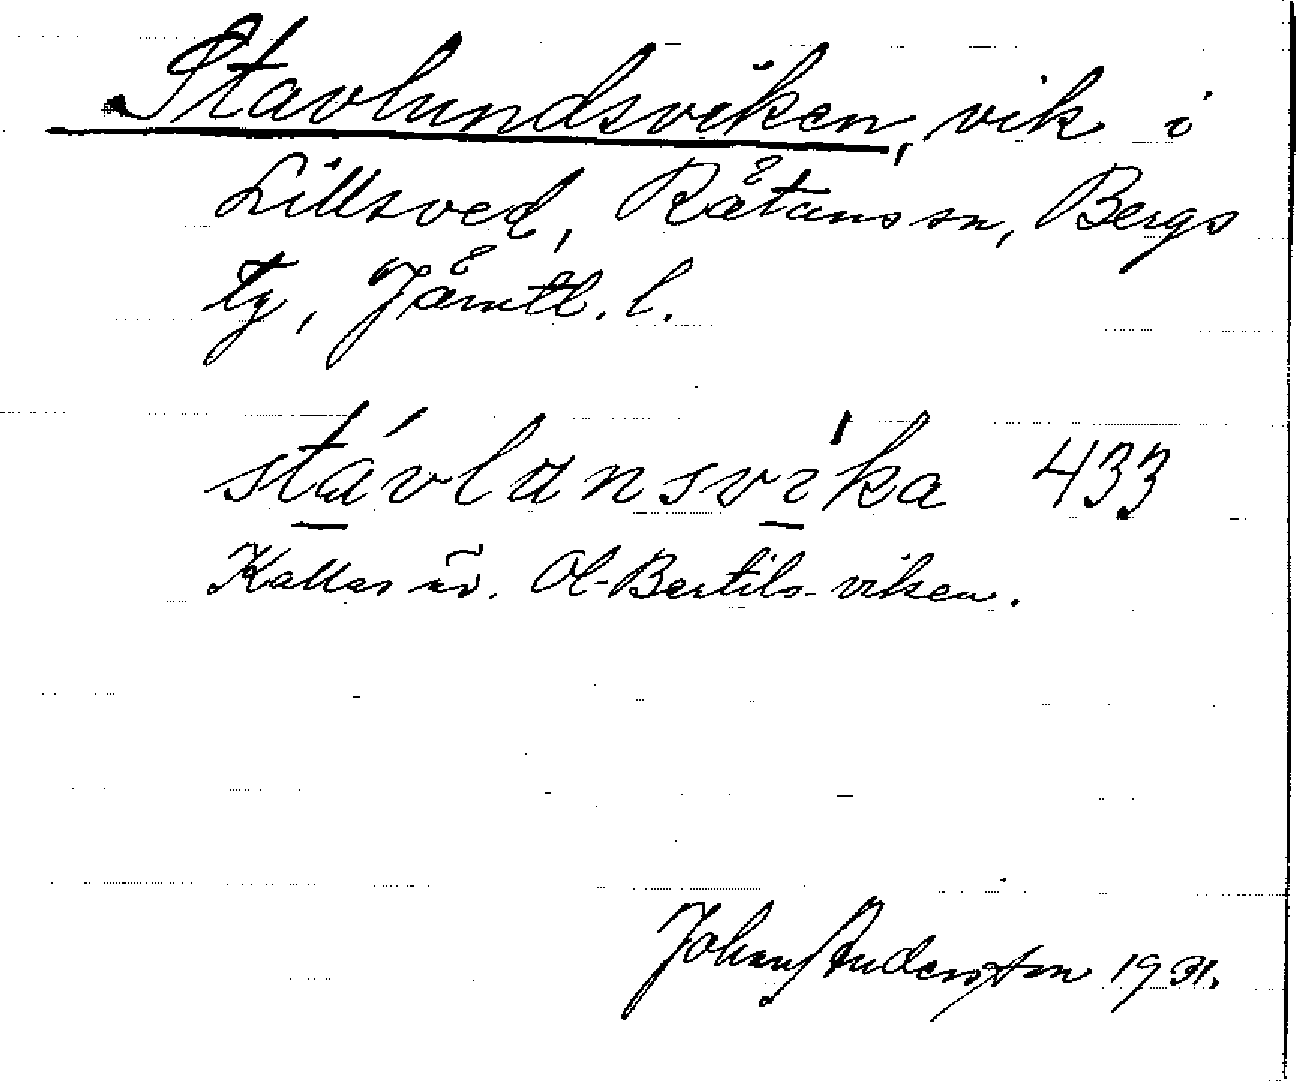 Stavlundsviken, vik i
Lillsved, Råtans sn, Bergs
tg, Jämtl. l.
stávlansvíka 433
Kallas äv. Ol-Bertils-viken.
Johan Anderson 1931.